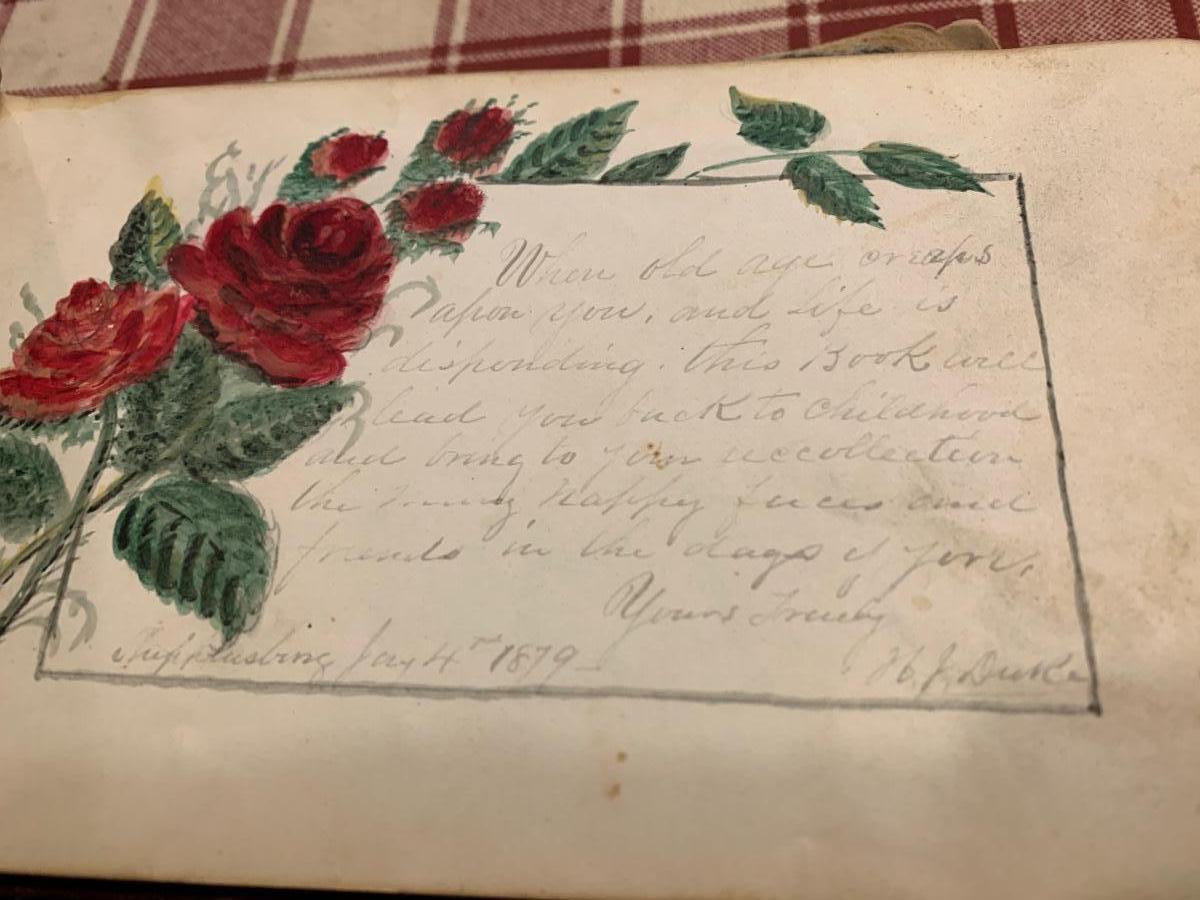 When old age creaps
apon you, and life is
disponding. this Book will
lead you back to childhood
and bring to your reccollection
the many happy faces and
friends in the days of yore,
Yours Truely
Shippensburg Jany 4th 1879
H. J. Duke